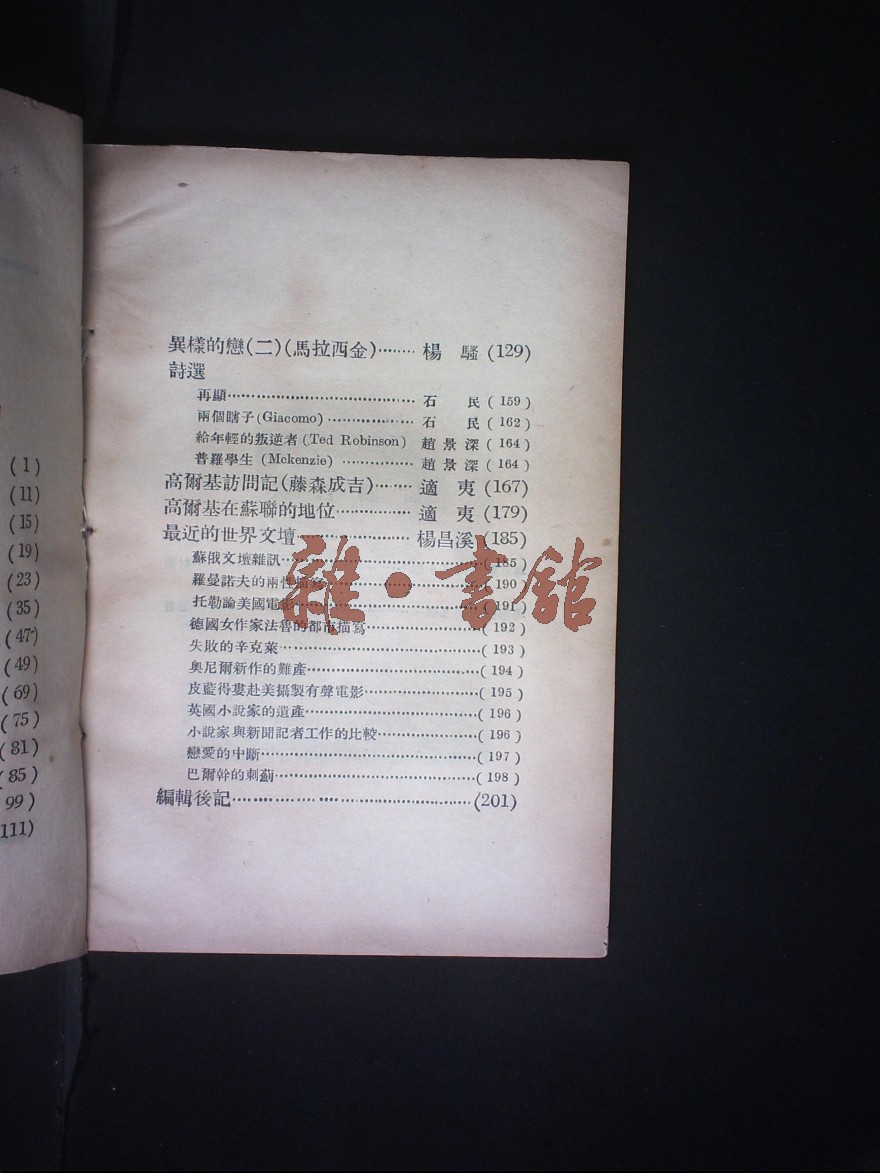 (1)
(11)
(15)
(19)
(23)
(35)
(47)
(49)
(69)
(75)
(81)
(85)
99)
111)
異樣的戀(二)(馬拉西金)········楊 騷(129)
詩選
再顯······································石 民(159)
兩個瞎子(Giacomo)··················石 民(162)
給年輕的叛逆者(Ted Robinson) 趙景深(164)
普羅學生(Mckenzie)···············趙景深(164)
高爾基訪問記(藤森成吉)·······適 夷(167)
高爾基在蘇聯的地位···············適 夷(179)
最近的世界文壇························楊昌溪(185)
蘇俄文壇雜訊·········································(185)
羅曼諾夫的兩性描寫······························(190)
托勒論美國電影·····································(191)
德國女作家法魯的都市描寫·····················(192)
失敗的辛克萊········································(193)
奧尼爾新作的難產··································(194)
皮藍得婁赴美攝製有聲電影·····················(195)
英國小說家的遺產··································(196)
小說家與新聞記者工作的比較··················(196)
戀愛的中斷···········································(197)
巴爾幹的刺薊········································(198)
編輯後記················································(201)
雜·書館